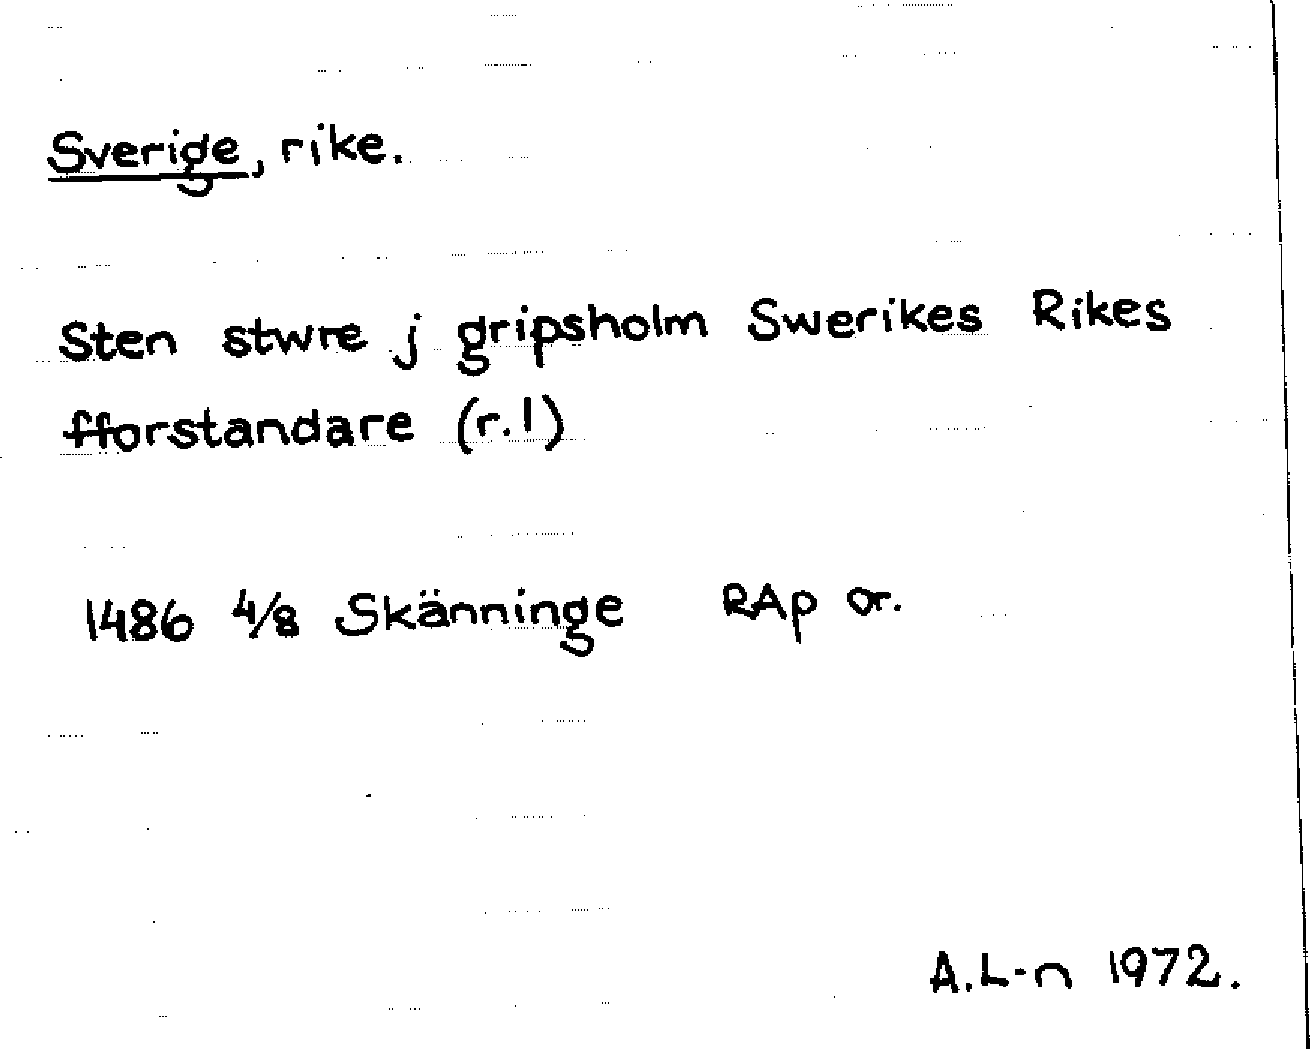 Sverige, rike.
Sten stwre j gripsholm Swerikes Rikes
fforstandare (r.1)
1486 4/8 Skänninge RAp or.
A.L-n 1972.